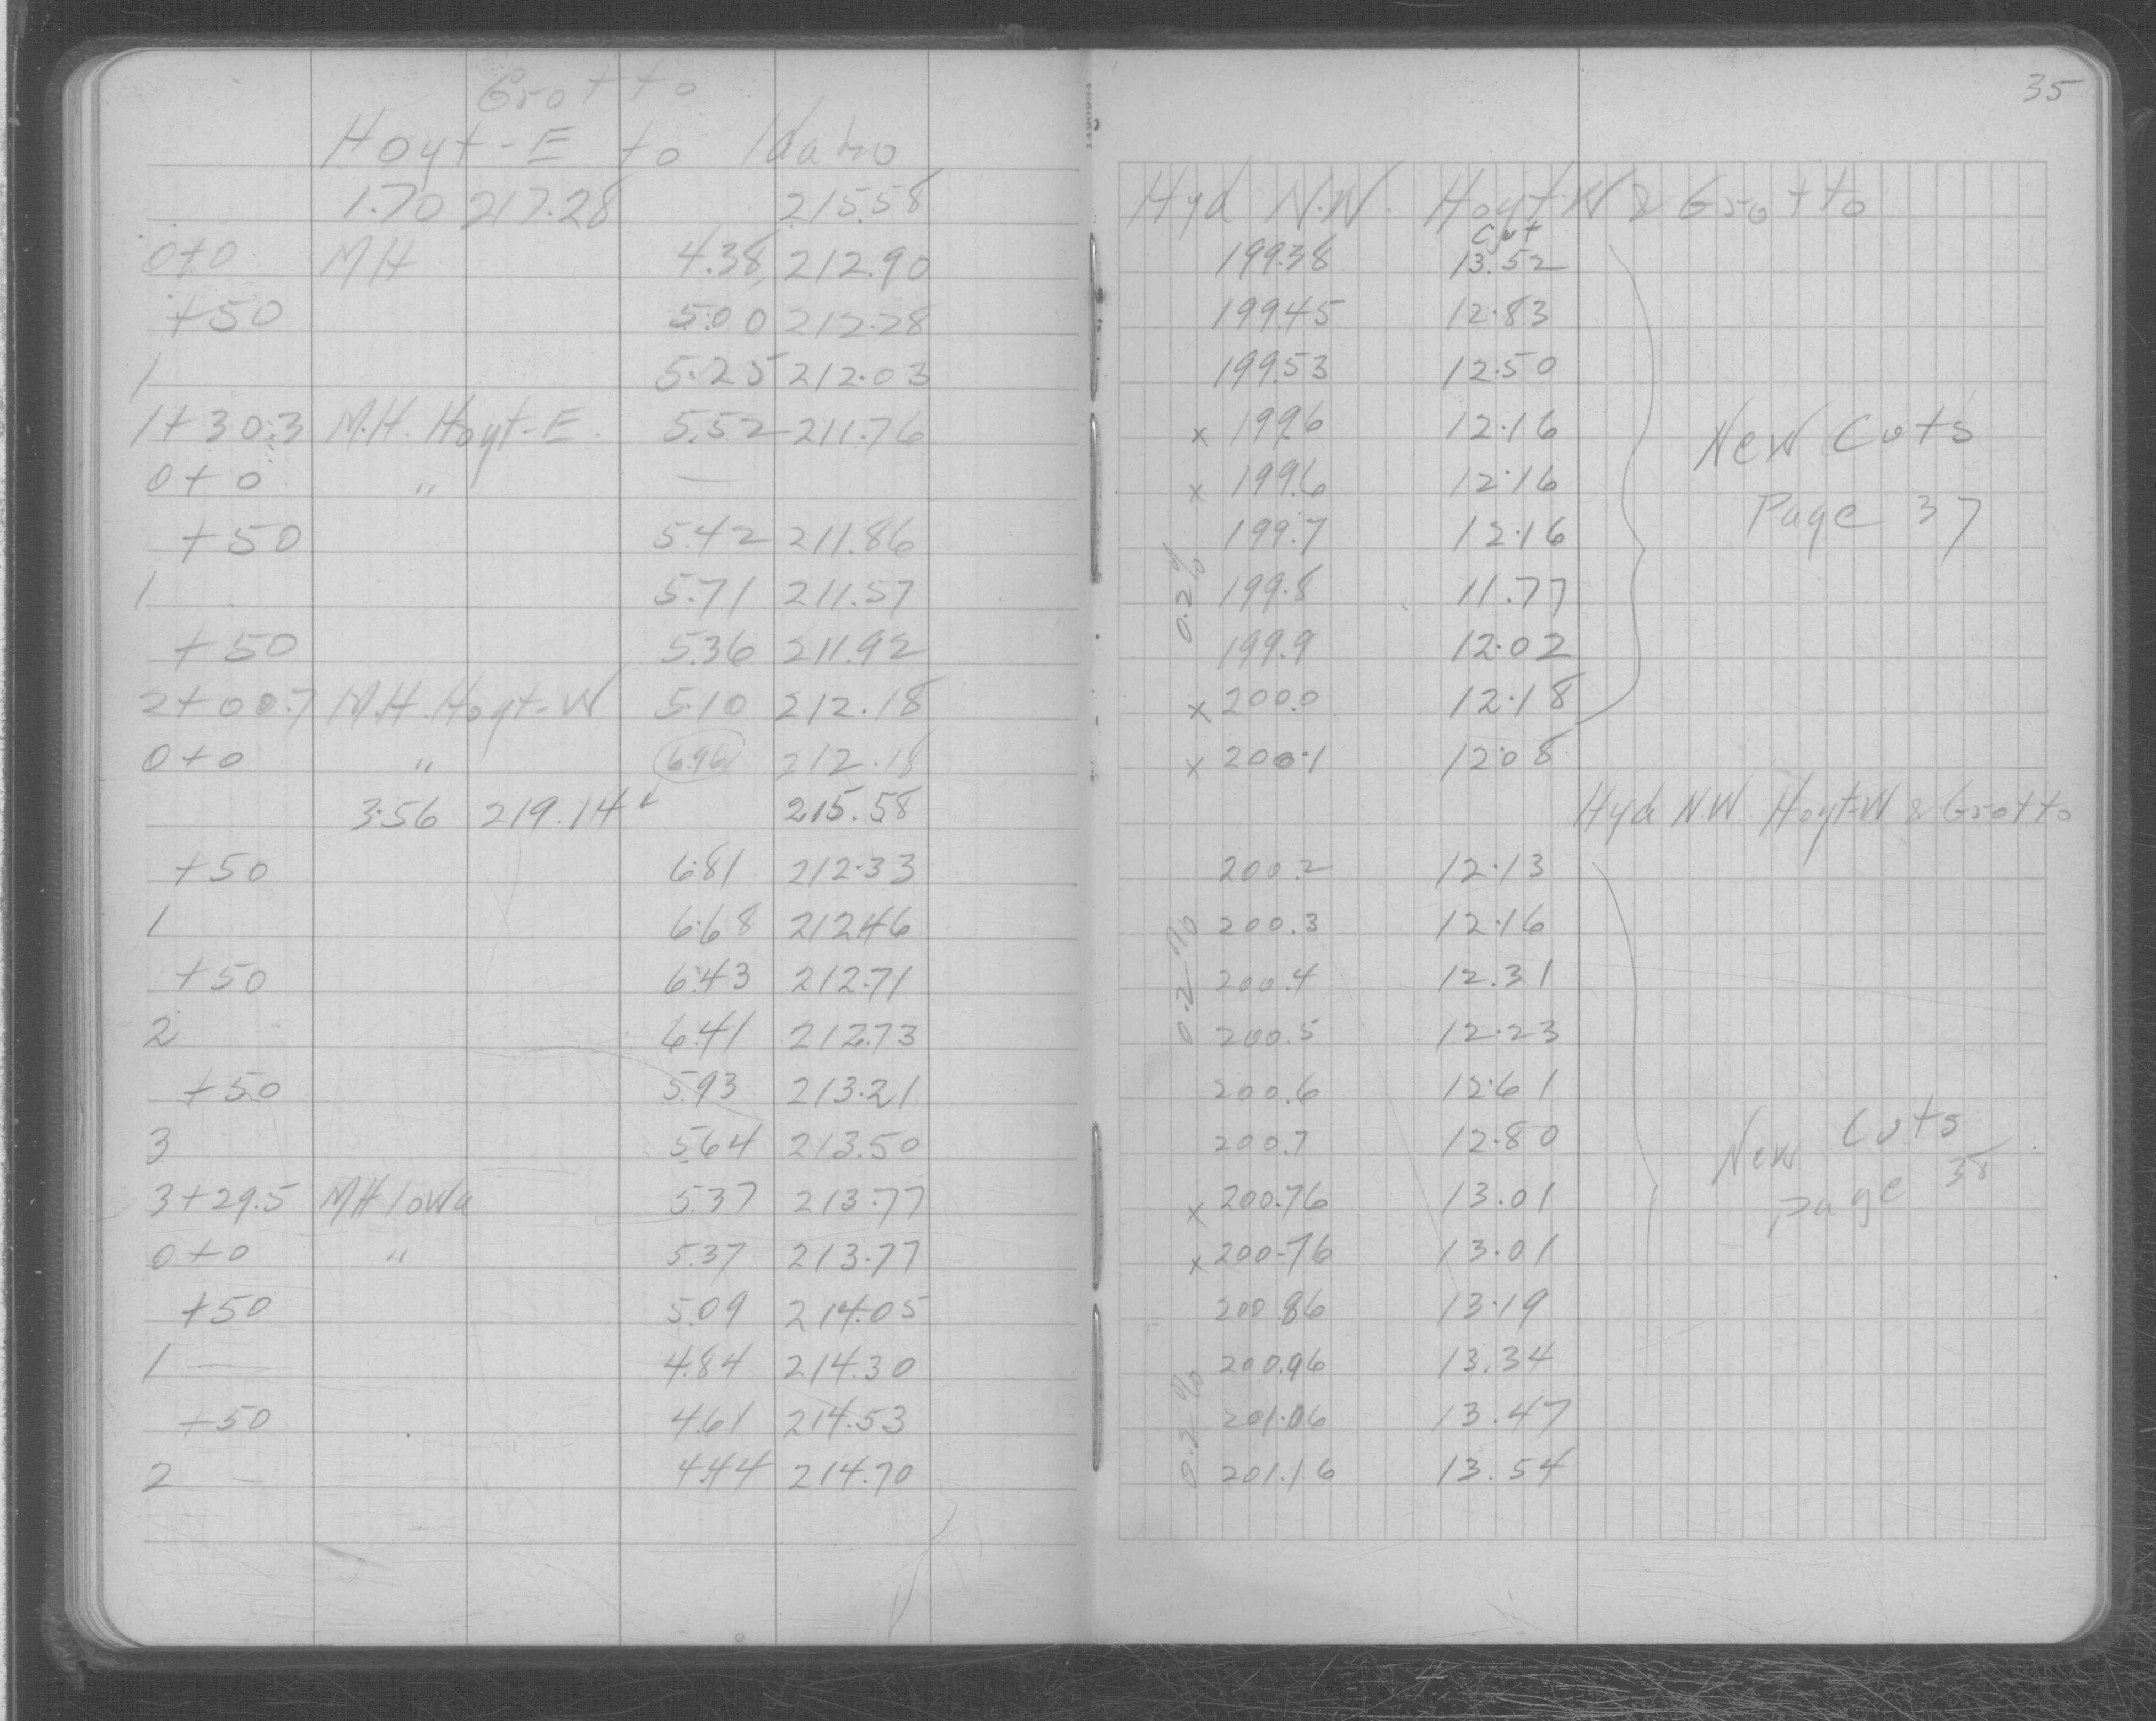 Grotto
Hoyt-E to Idaho
1.70 217.28 215.58
0+0 MH 4.38 212.90
+50 5.00 212.28
1 5.25 212.03
1+30.3 M.H. Hoyt-E. 5.52 211.76
0+0 " —
+50 5.42 211.86
1 5.71 211.57
+50 5.36 211.92
2+00.7 M.H. Hoyt-W 5.10 212.18
0+0 " 6.96 212.18
3.56 219.14 215.58
+50 6.81 212.33
1 6.68 212.46
+50 6.43 212.71
2 6.41 212.73
+50 5.93 213.21
3 5.64 213.50
3+29.5 MH Iowa 5.37 213.77
0+0 " 5.37 213.77
+50 5.09 214.05
1 4.84 214.30
+50 4.61 214.53
2 4.44 214.70
35
Hyd N.W. Hoyt-W & Grotto
Cut
199.38 13.52
199.45 12.83
199.53 12.50
x 199.6 12.16
x 199.6 12.16
199.7 12.16
199.8 11.77
199.9 12.02
0.2%
x 200.0 12.18
x 200.1 12.08
New Cuts
Page 37
Hyd N.W. Hoyt-W & Grotto
200.2 12.13
200.3 12.16
200.4 12.31
200.5 12.23
0.2%
200.6 12.61
200.7 12.80
x 200.76 13.01
x 200.76 13.01
200.86 13.19
200.96 13.34
201.06 13.47
201.16 13.54
0.2%
New Cuts
page 38